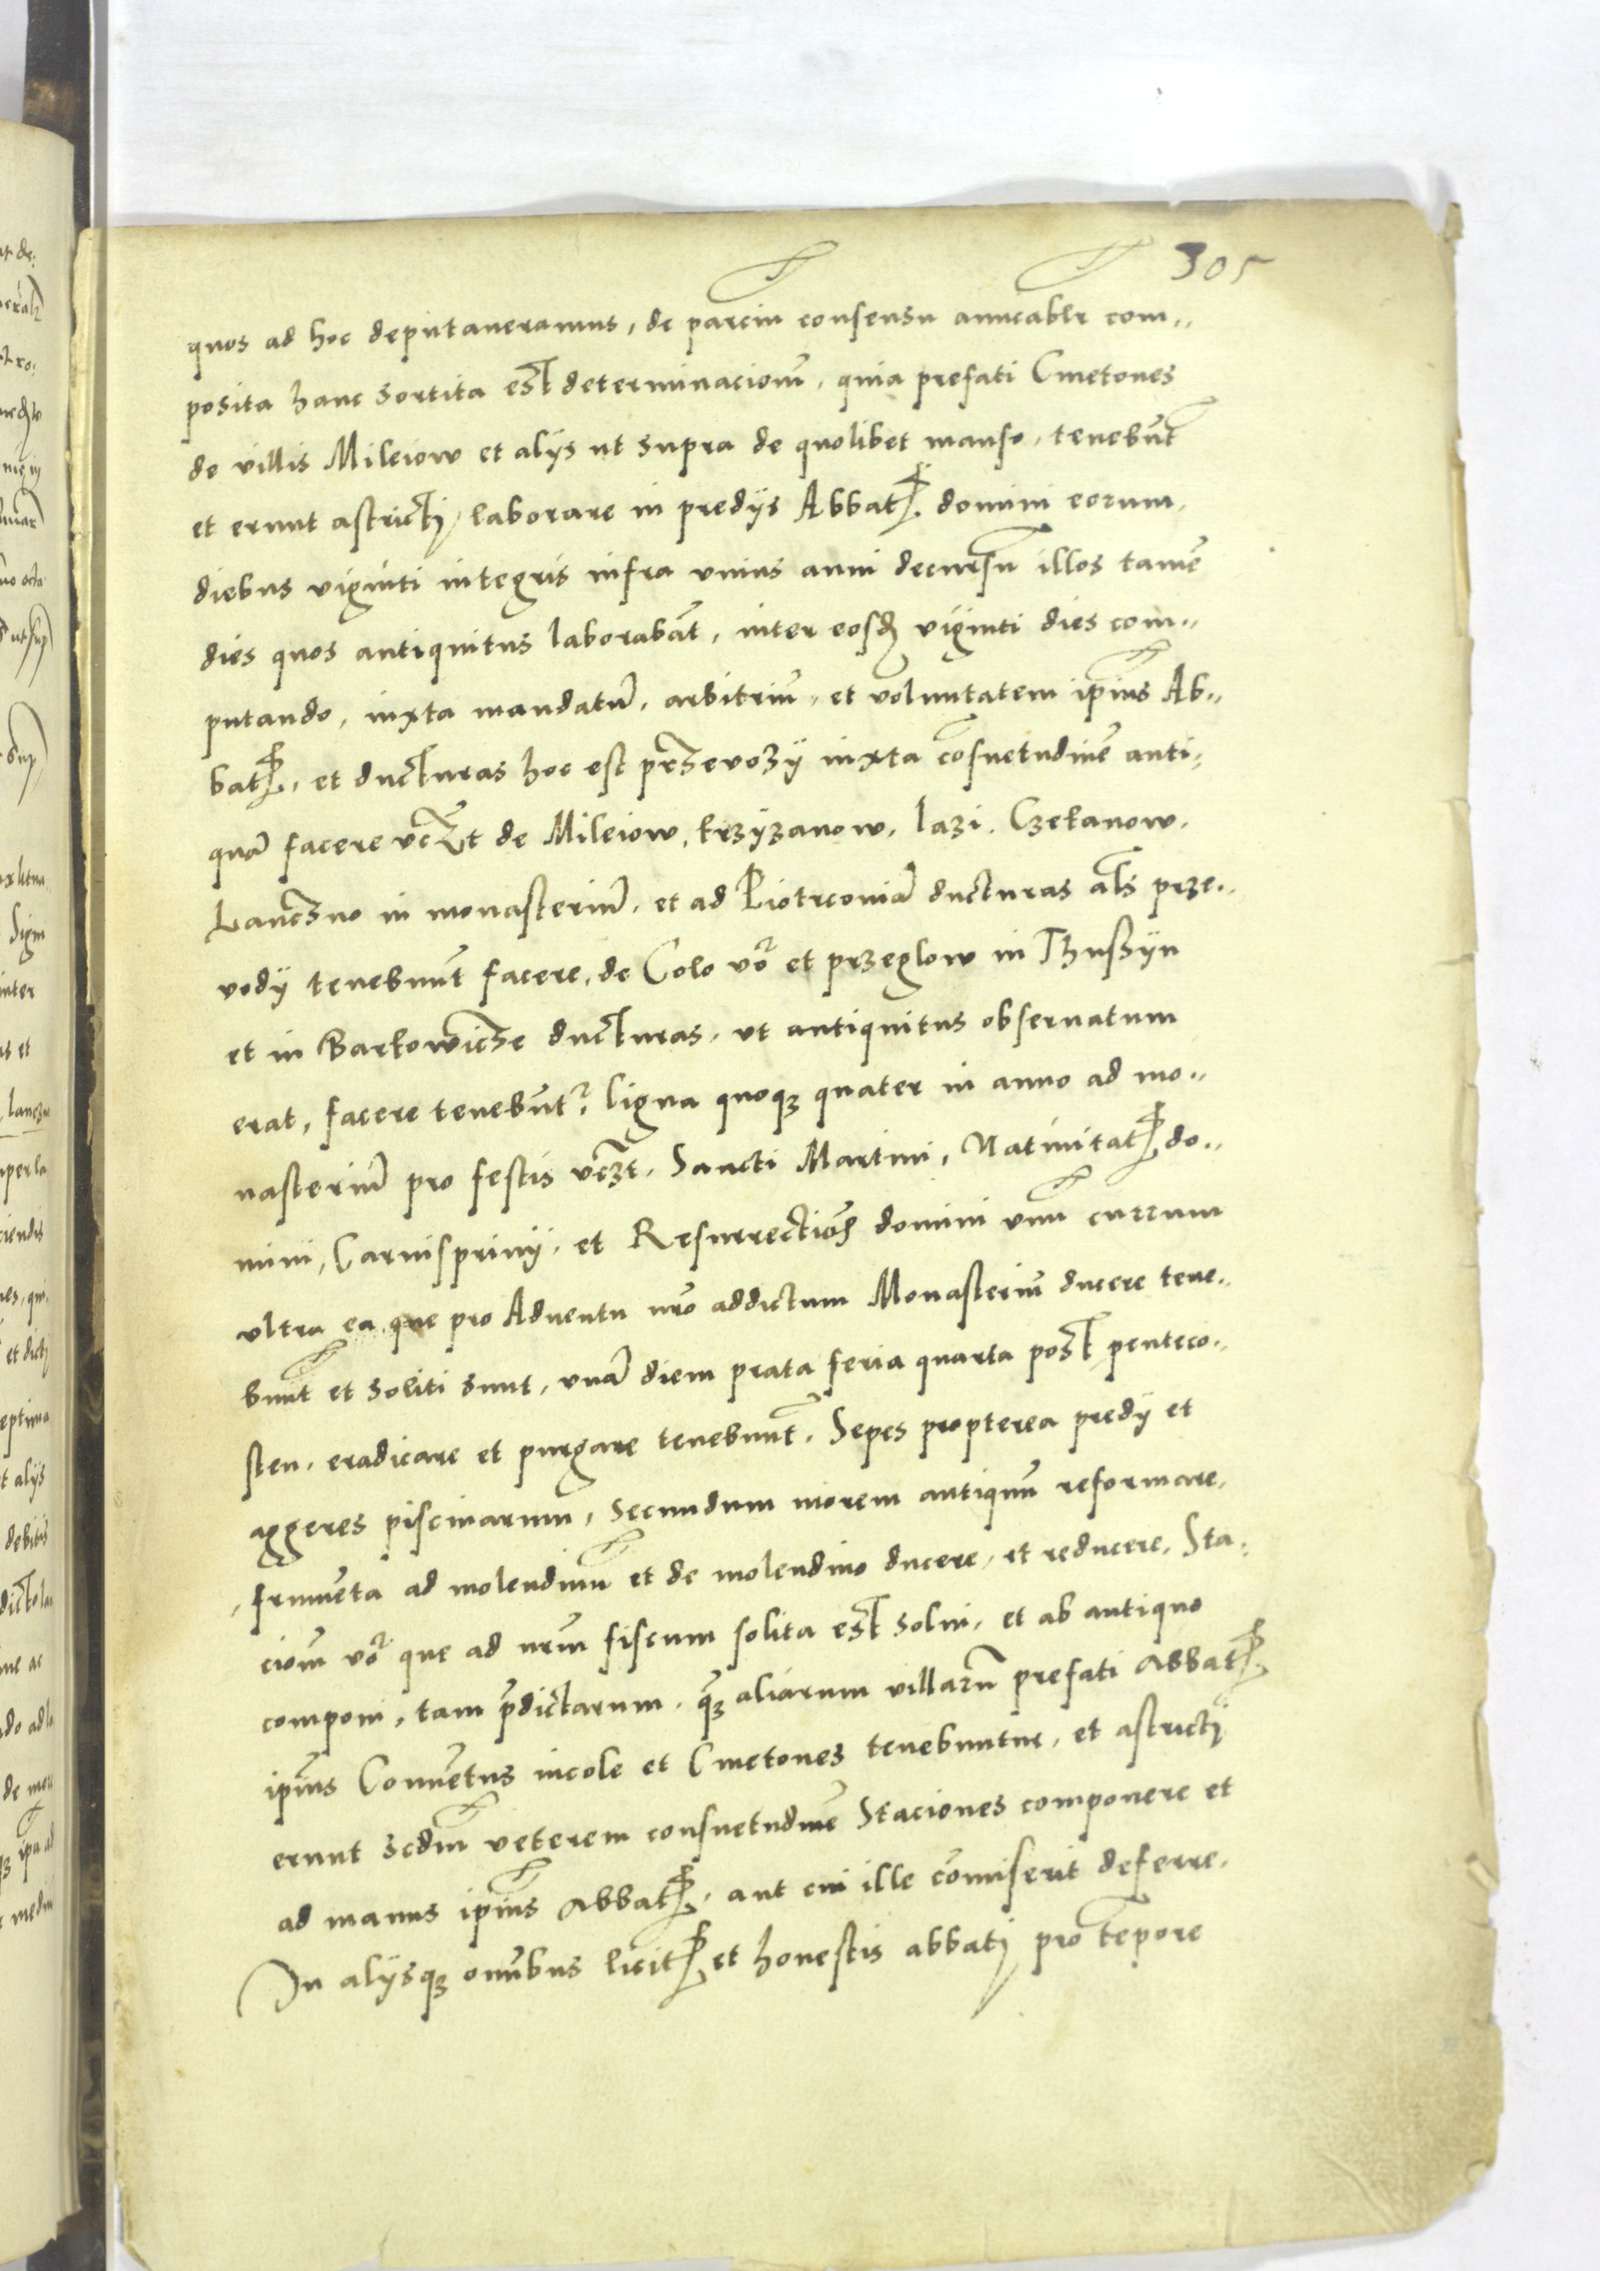 305
quos ad hoc deputaueramus, de parciu consensu amicablr com..
posita hanc sortita est determinacionem, quia prefati Cmetones
de villis Mileiow et alijs ut supra de quolibet manso, tenebunt
et erunt astricti, laborare in predijs Abbatis domini eorum,
diebus viginti integris infra vnius anni decursu illos tame
dies quos antiquitus laborabat, inter eosdem viginti dies com..
putando, iuxta mandatu, arbitriu, et voluntatem ipius Ab..
batis, et ducturas hoc est przevozij iuxta cosuetudine anti:
qua facere vczt de Mileiow, krzyzanow, lazi, Czekanow,
Lanczno in monasteriu, et ad Piotrconia ducturas als prze..
vody tenebunt facere, de Colo vo et przeglow in Thusszyn
et in Barkowicze ducturas, ut antiquitus obseruatum
erat, facere tenebunt, ligna quoque quater in anno ad mo..
nasteriu pro festis vczt, Sancti Martini, Natiuitatis do..
mini, Carnispriuij, et Resurrectiois domini vnu currum
vltra ea que pro Aduentu nro addictum Monasteriu ducere tene..
bunt et soliti sunt, vna diem prata feria quarta post penteco..
sten, eradicare et purgare tenebunt, Sepes propterea predij et
aggeres piscinarum, secundum morem antiquu reformare,
frumeta ad molendinu et de molendino ducere, et reducere, Sta:
ciom vo que ad nrm fiscum solita est solui, et ab antiquo
componi, tam pdictarum, qz aliarum villaru prefati Abbatis
ipius Conuetus incole et Cmetones tenebuntur, et astricti
erunt scdm veterem consuetudine Staciones componere et
ad manus ipius Abbatis, aut cui ille comiserit deferre,
In alijsque omibus licitis et honestis abbati pro tepore